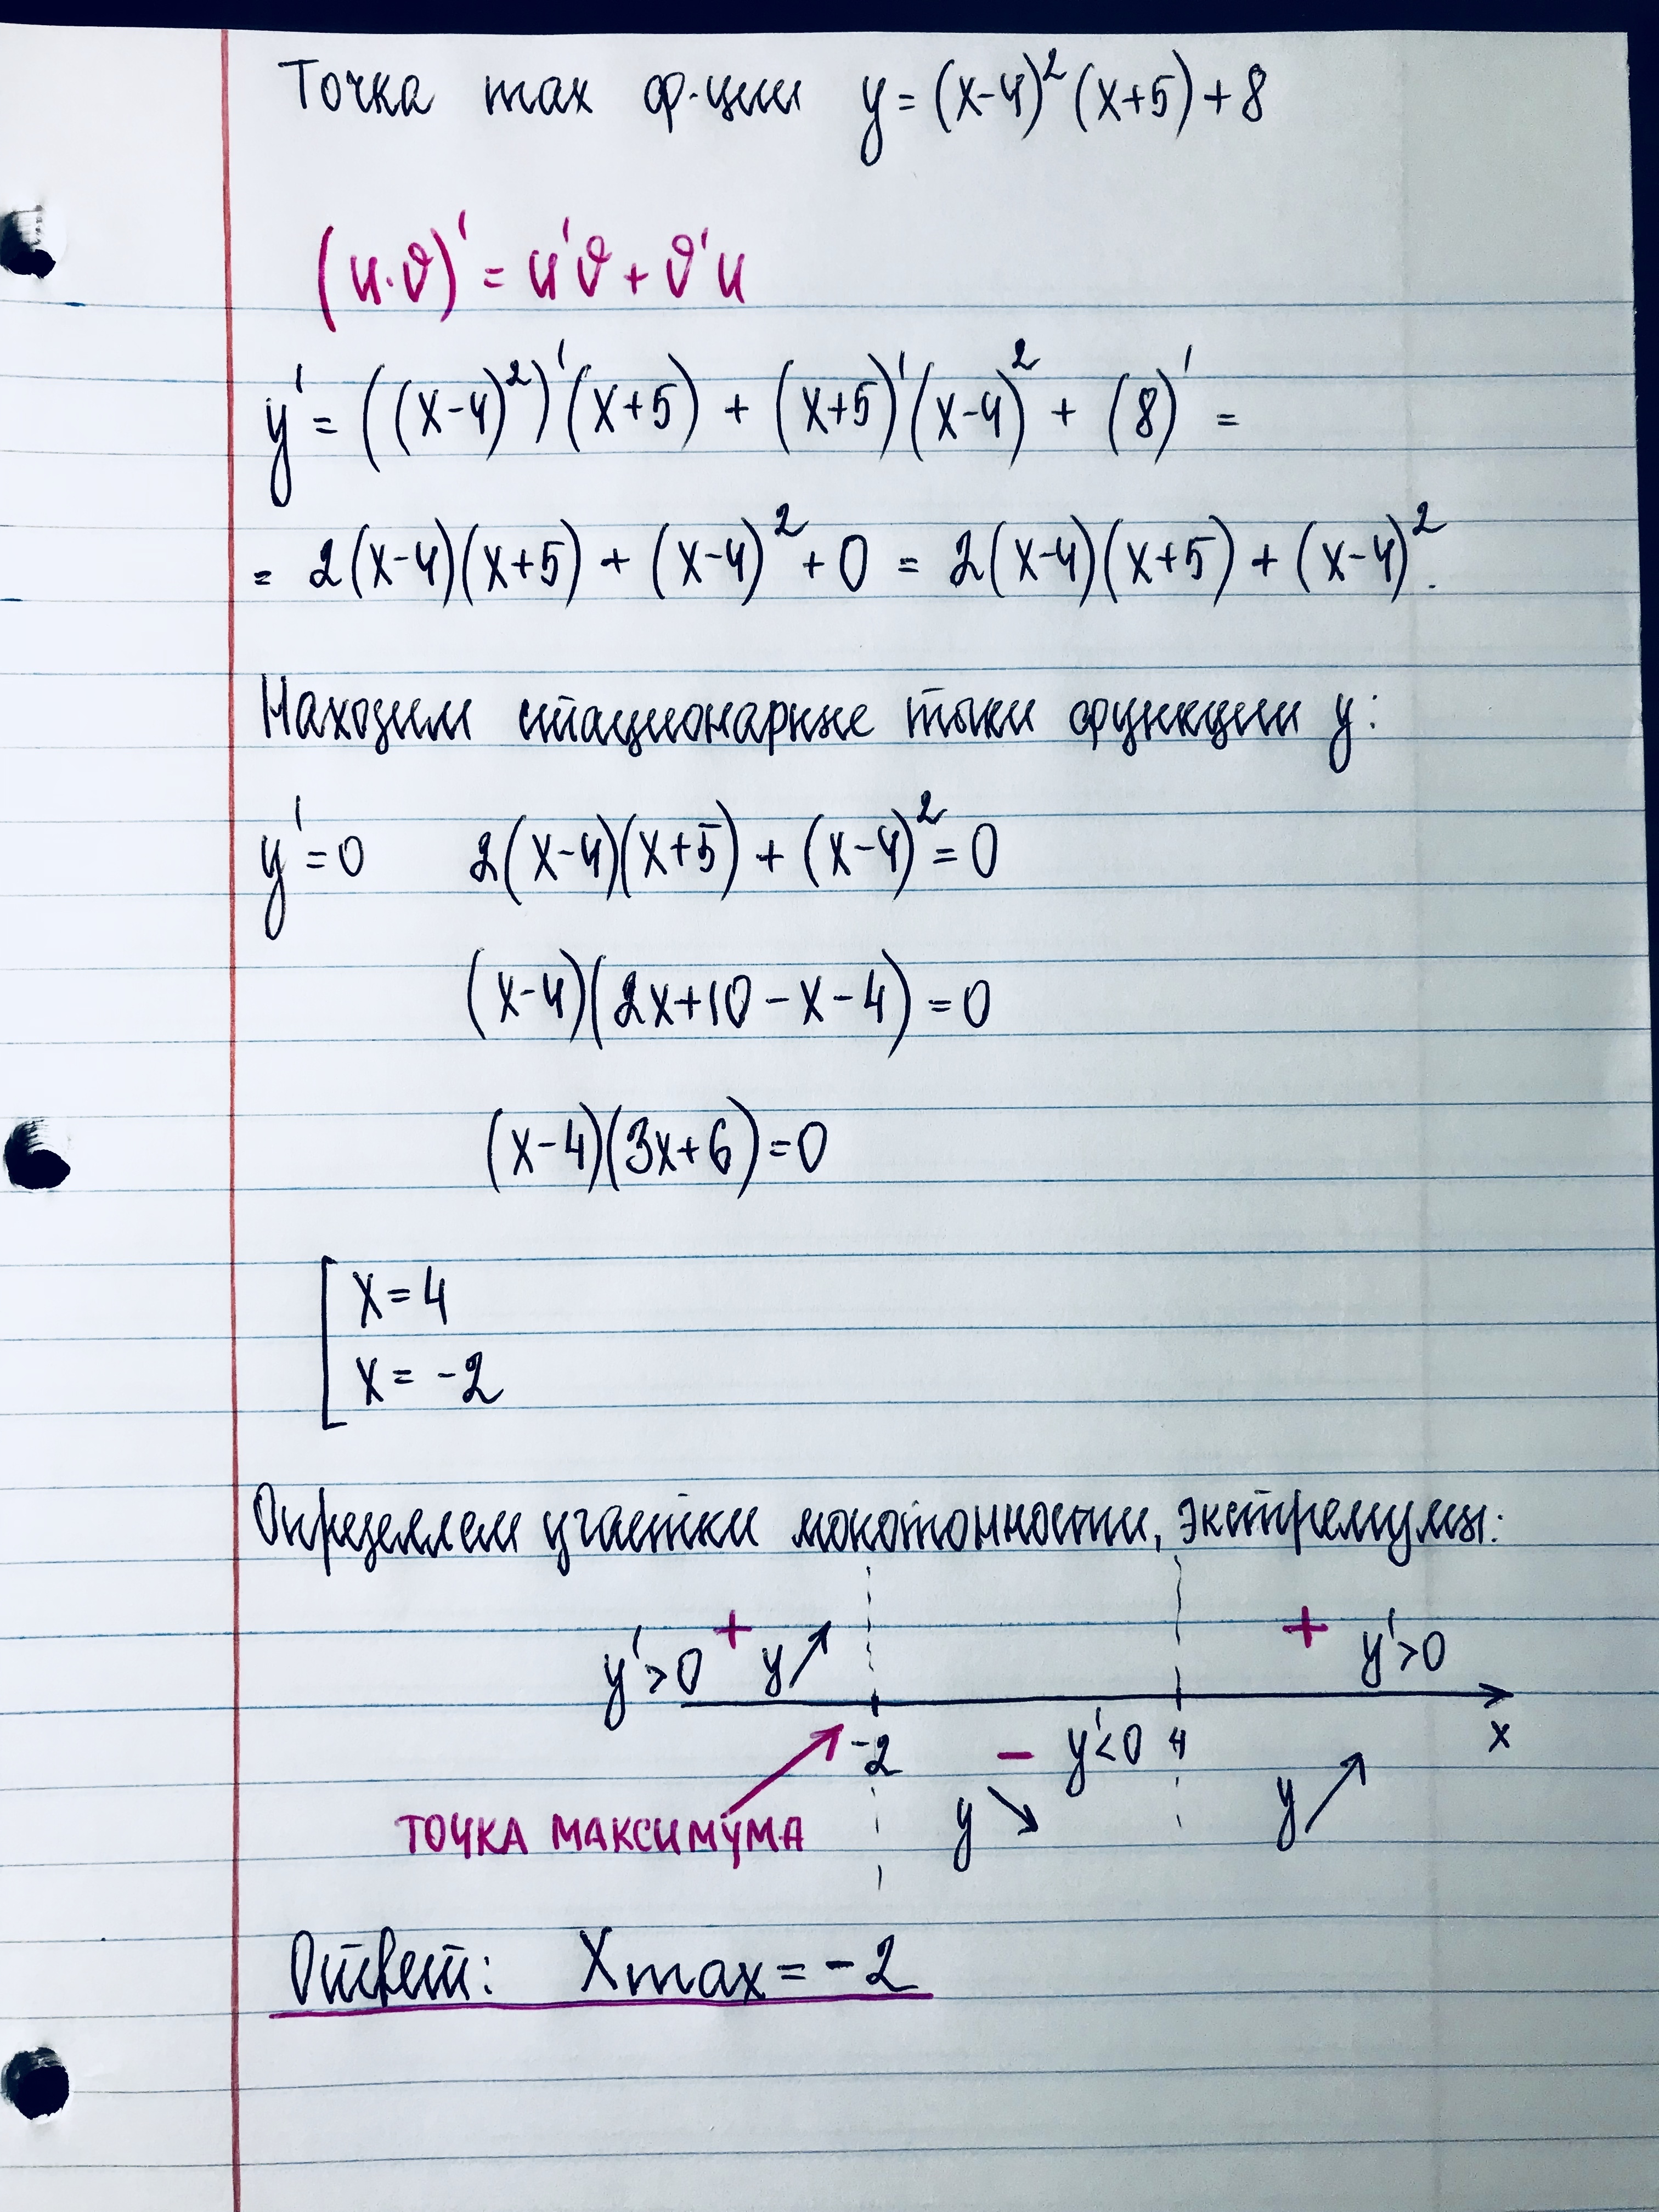 Точка max ф-ции y = (x-4)²(x+5)+8
(u·v)' = u'v + v'u
y' = ((x-4)²)'(x+5) + (x+5)'(x-4)² + (8)' =
= 2(x-4)(x+5) + (x-4)² + 0 = 2(x-4)(x+5) + (x-4)².
Находим стационарные точки функции y:
y'=0 2(x-4)(x+5) + (x-4)² = 0
(x-4)(2x+10-x-4) = 0
(x-4)(3x+6)=0
[ x=4
x= -2
Определяем участки монотонности, экстремумы:
+ +
y'>0 y↗ y'>0
-2 − y'<0 4 x
ТОЧКА МАКСИМУМА y↘ y↗
Ответ: Xmax = -2